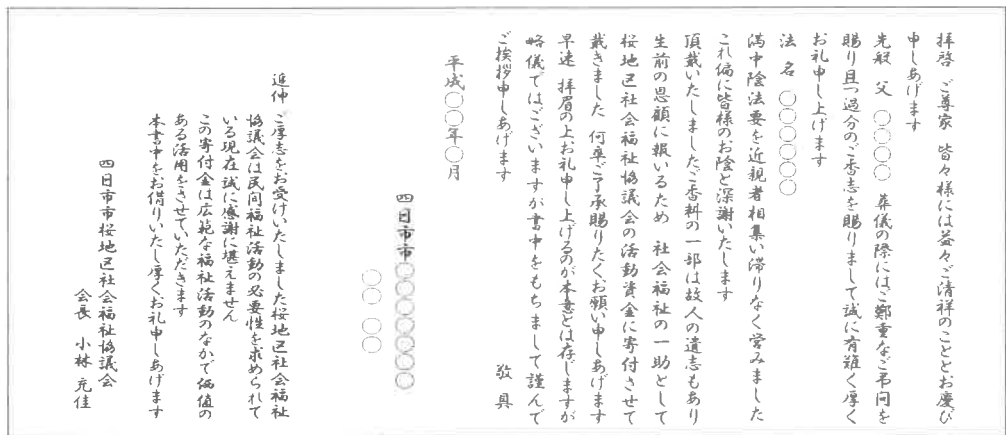 拝啓 ご尊家 皆々様には益々ご清祥のこととお慶び
申しあげます
先般 父 〇〇〇〇 葬儀の際にはご鄭重なご弔問を
賜り且つ過分のご香志を賜りまして誠に有難く厚く
お礼申し上げます
法 名 〇〇〇〇〇〇
満中陰法要を近親者相集い滞りなく営みました
これ偏に皆様のお陰と深謝いたします
頂戴いたしましたご香料の一部は故人の遺志もあり
生前の恩顧に報いるため 社会福祉の一助として
桜地区社会福祉協議会の活動資金に寄付させて
戴きました 何卒ご了承賜りたくお願い申しあげます
早速 拝眉の上お礼申し上げるのが本意とは存じますが
略儀ではございますが書中をもちまして謹んで
ご挨拶申しあげます 敬 具
平成〇〇年〇月
四日市市〇〇〇〇〇〇〇
〇〇 〇〇
追伸 ご厚志をお受けいたしました桜地区社会福祉
協議会は民間福祉活動の必要性を求められて
いる現在誠に感謝に堪えません
この寄付金は広範な福祉活動のなかで価値の
ある活用をさせていただきます
本書中をお借りいたし厚くお礼申しあげます
四日市市桜地区社会福祉協議会
会長 小林 充佳